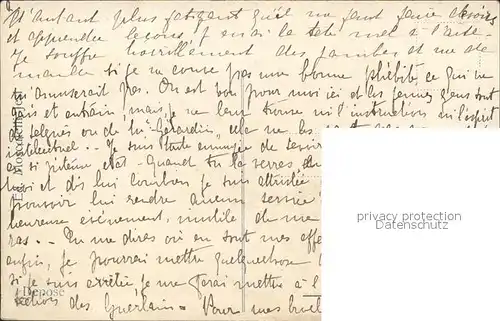 d'autant plus fatigant qu'il me faut faire devoirs
et apprendre leçons, j'en ai la tête
Je souffre horriblement des jambes et me de
mande si je ne couve pas une bonne phlébite, ce qui ne
m'amuserait pas. On est bon pour moi ici et les jeunes gens sont
gais et entrain, mais je ne leur trouve ni l'instruction ni l'esprit
de ou de Mr Gérardin, cela ne les
intellectuel.. Je suis toute ennuyée de savoir
en si piteux état - Quand tu la verras,
moi et dis lui combien je suis attristée
pouvoir lui rendre aucun service
heureux événement, inutile de me
ras.- Tu me diras où en sont mes affe
enfin, je pourrai mettre quelquechose
si je suis arrêtée, je me ferai mettre à l'
des Guerlain = Pour mes
privacy protection
Datenschutz
Ed. Moscatelli
Déposé